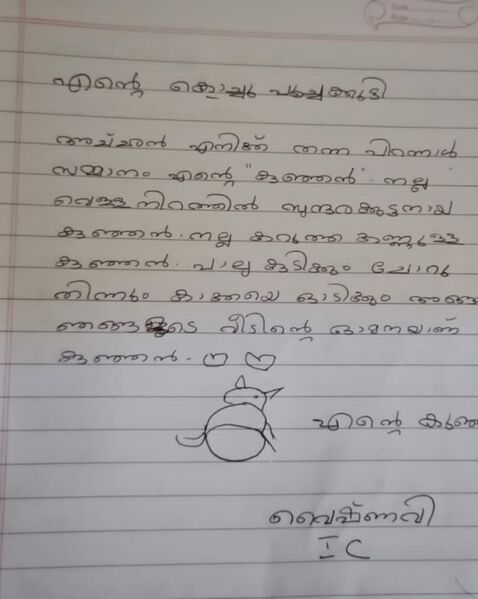 എന്റെ കൊച്ചു പൂച്ചക്കുട്ടി
അച്ഛൻ എനിക്ക് തന്ന പിറന്നാൾ
സമ്മാനം എന്റെ "കുഞ്ഞൻ". നല്ല
വെള്ള നിറത്തിൽ സുന്ദരകുട്ടനായ
കുഞ്ഞൻ. നല്ല കറുത്ത കണ്ണുള്ള
കുഞ്ഞൻ. പാലു കുടിക്കും ചോറു
തിന്നും കാക്കയെ ഓടിക്കും അങ്ങ
ഞങ്ങളുടെ വീടിന്റെ ഓമനയാണ്
കുഞ്ഞൻ.
എന്റെ കുഞ്ഞ
വൈഷ്ണവി
I C